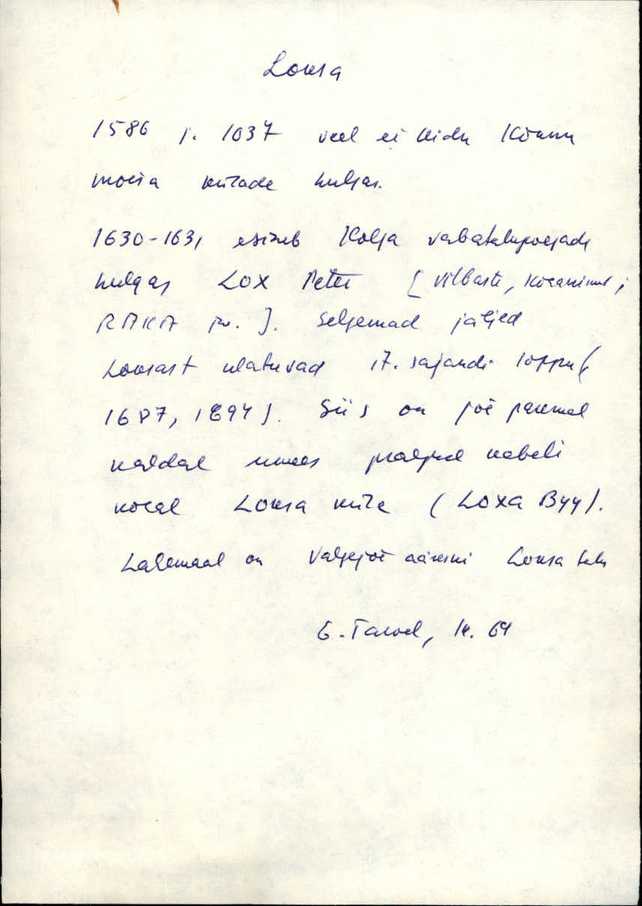 Loksa
1586 j. 1637 veel ei leidu Kõnnu
moisa külade hulgas.
1630-1631 esineb Kolga vabatalupoegade
hulgas Lox Peter [Vilbaste, Kohanimed;
RAKA]. Selgemad jäljed
Loksast ulatuvad 17. sajandi loppu (
1687, 1694). Siis on jõe paremal
kaldal umbes praeguse kabeli
kohal Loksa küla (Loxa Byy).
Lahemaal on Valgejõe ääreni Loksa talu
E. Tarvel, lk. 64